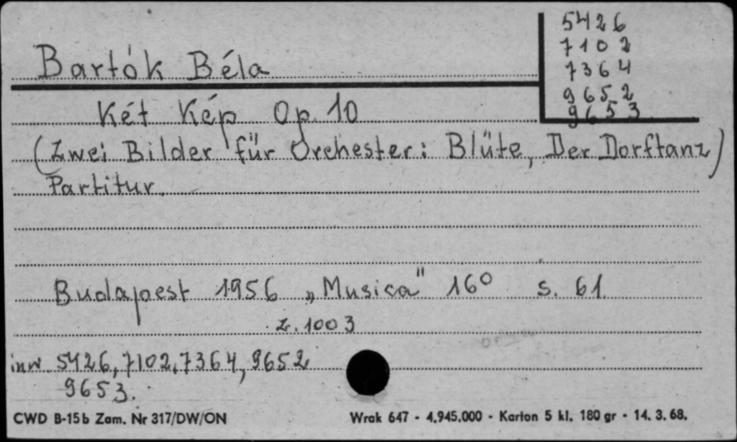 5426
7102
7364
9652
9653
Bartók Béla
Két Kép Op. 10
(Zwei Bilder für Orchester: Blüte, Der Dorftanz)
Partitur.
Budapest 1956 „Musica" 16° s. 61.
Z. 1003
inw 5426, 7102, 7364, 9652
9653.
CWD B-15b Zam. Nr 317/DW/ON Wrak 647 - 4.945.000 - Karton 5 kl. 180 gr - 14. 3. 68.